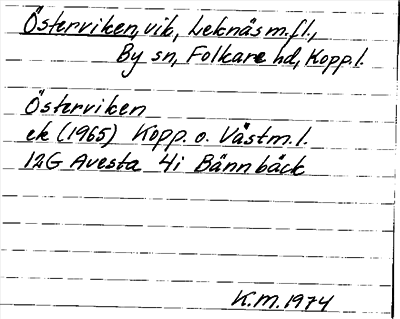 Österviken, vik, Leknäs m.fl.,
By sn, Folkare hd, Kopp.l.
Österviken
ek (1965) Kopp. o. Västm.l.
12G Avesta 4i Bännbäck
K.M. 1974